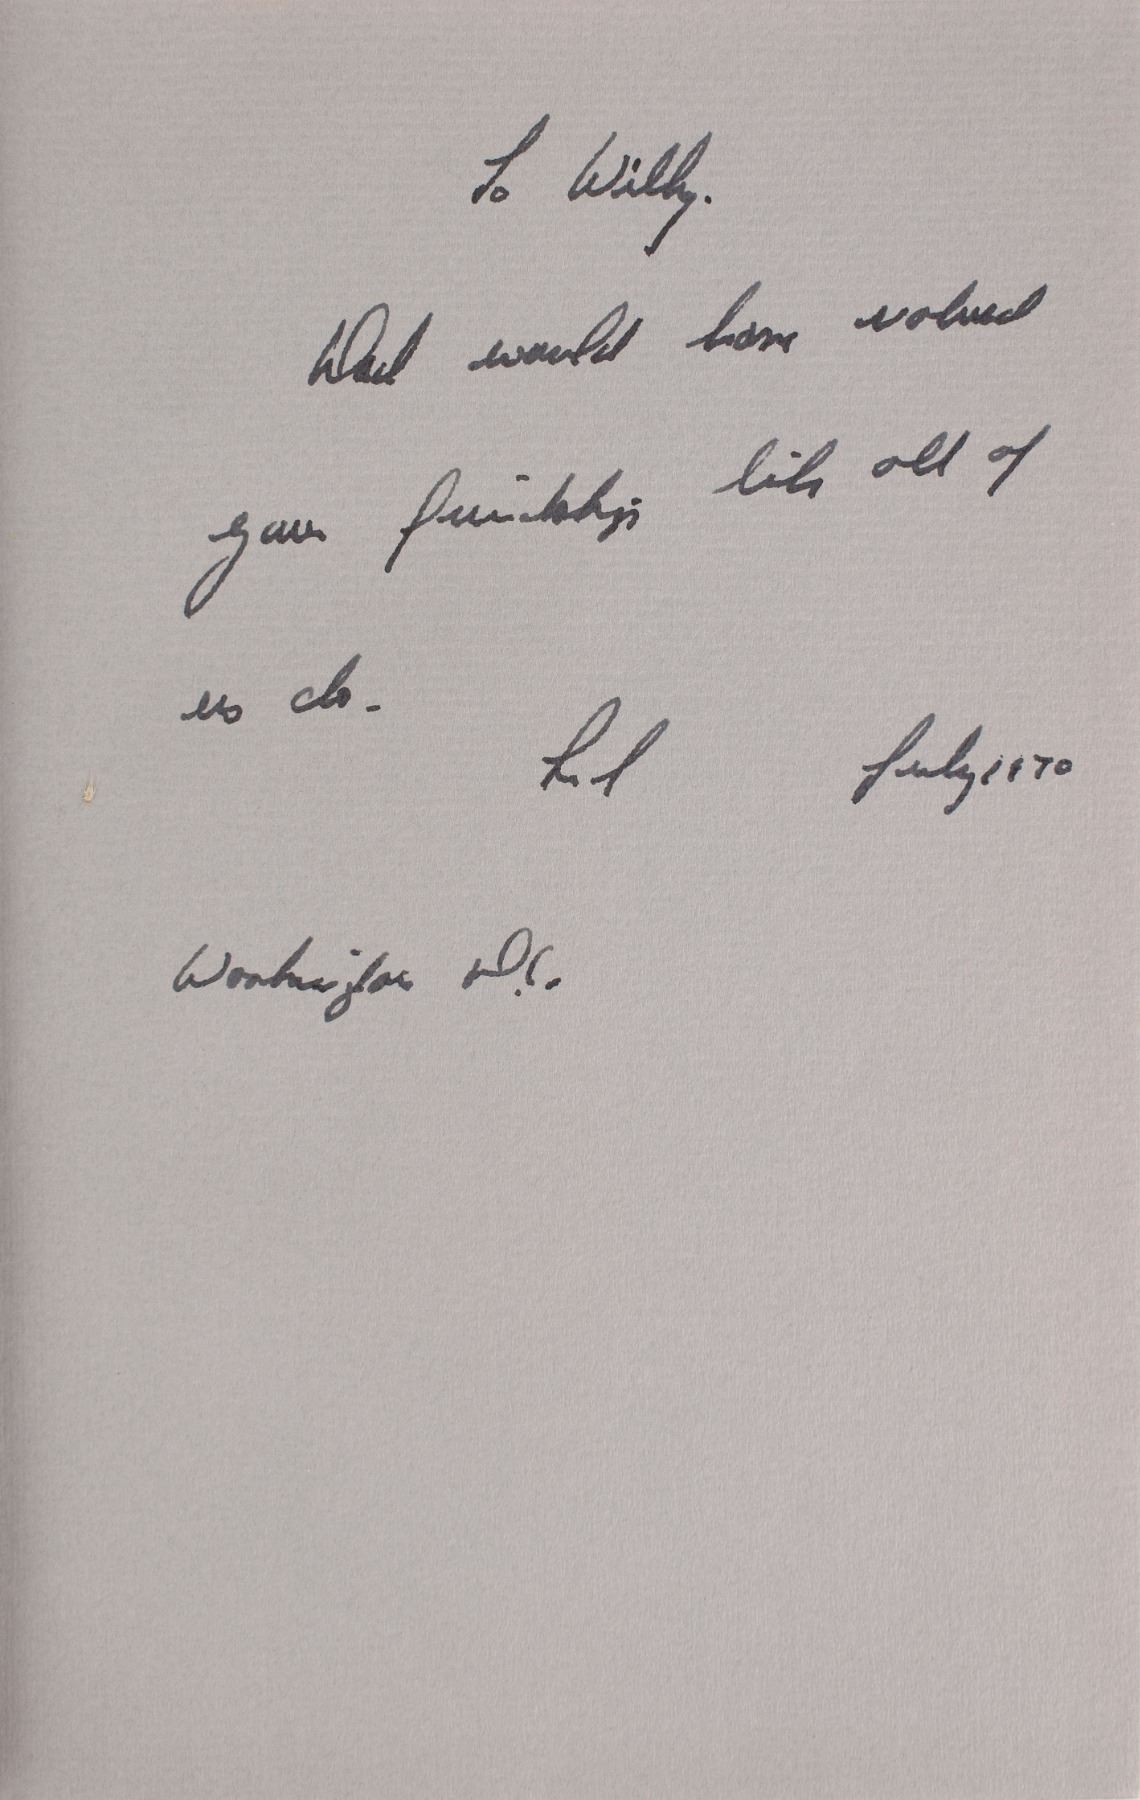 To Willy.
Dad would have valued
your friendship like all of
us do.
July 1970
Washington D.C.